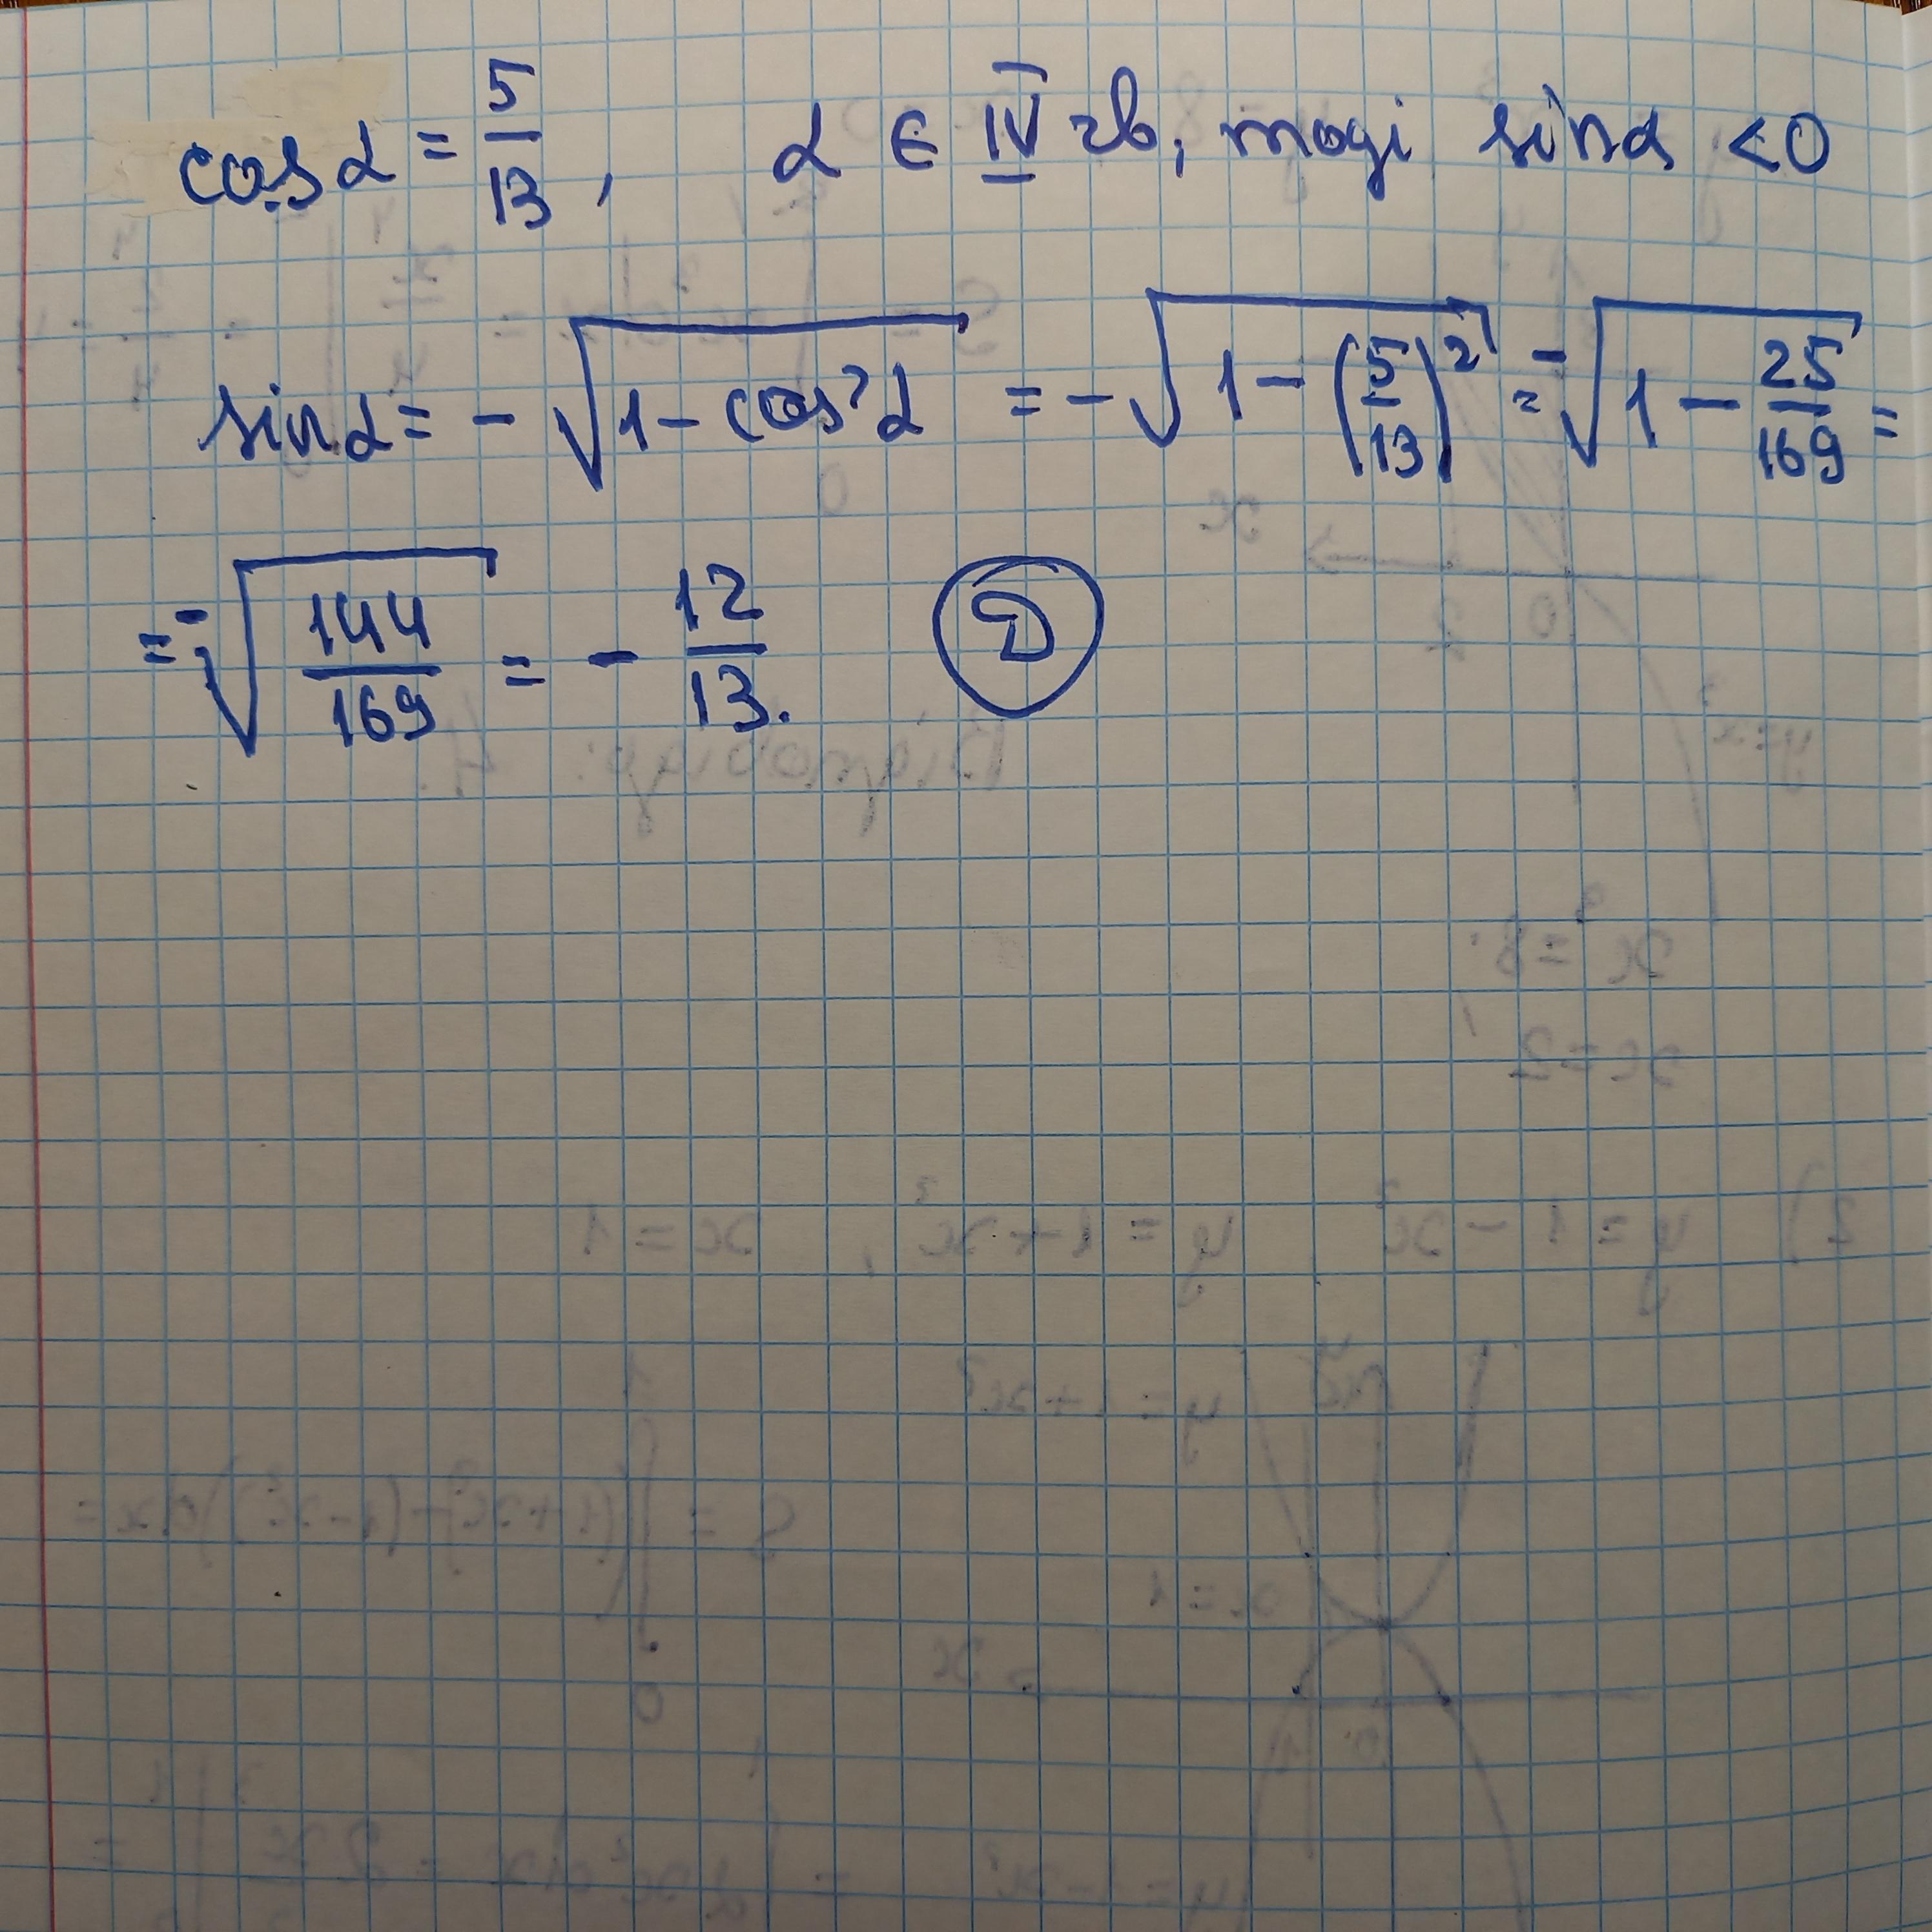 cos α = 5/13, α ∈ IV чв, тоді sin α < 0
sin α = - √(1 - cos² α) = - √(1 - (5/13)²) = - √(1 - 25/169) =
= - √(144/169) = - 12/13. Д